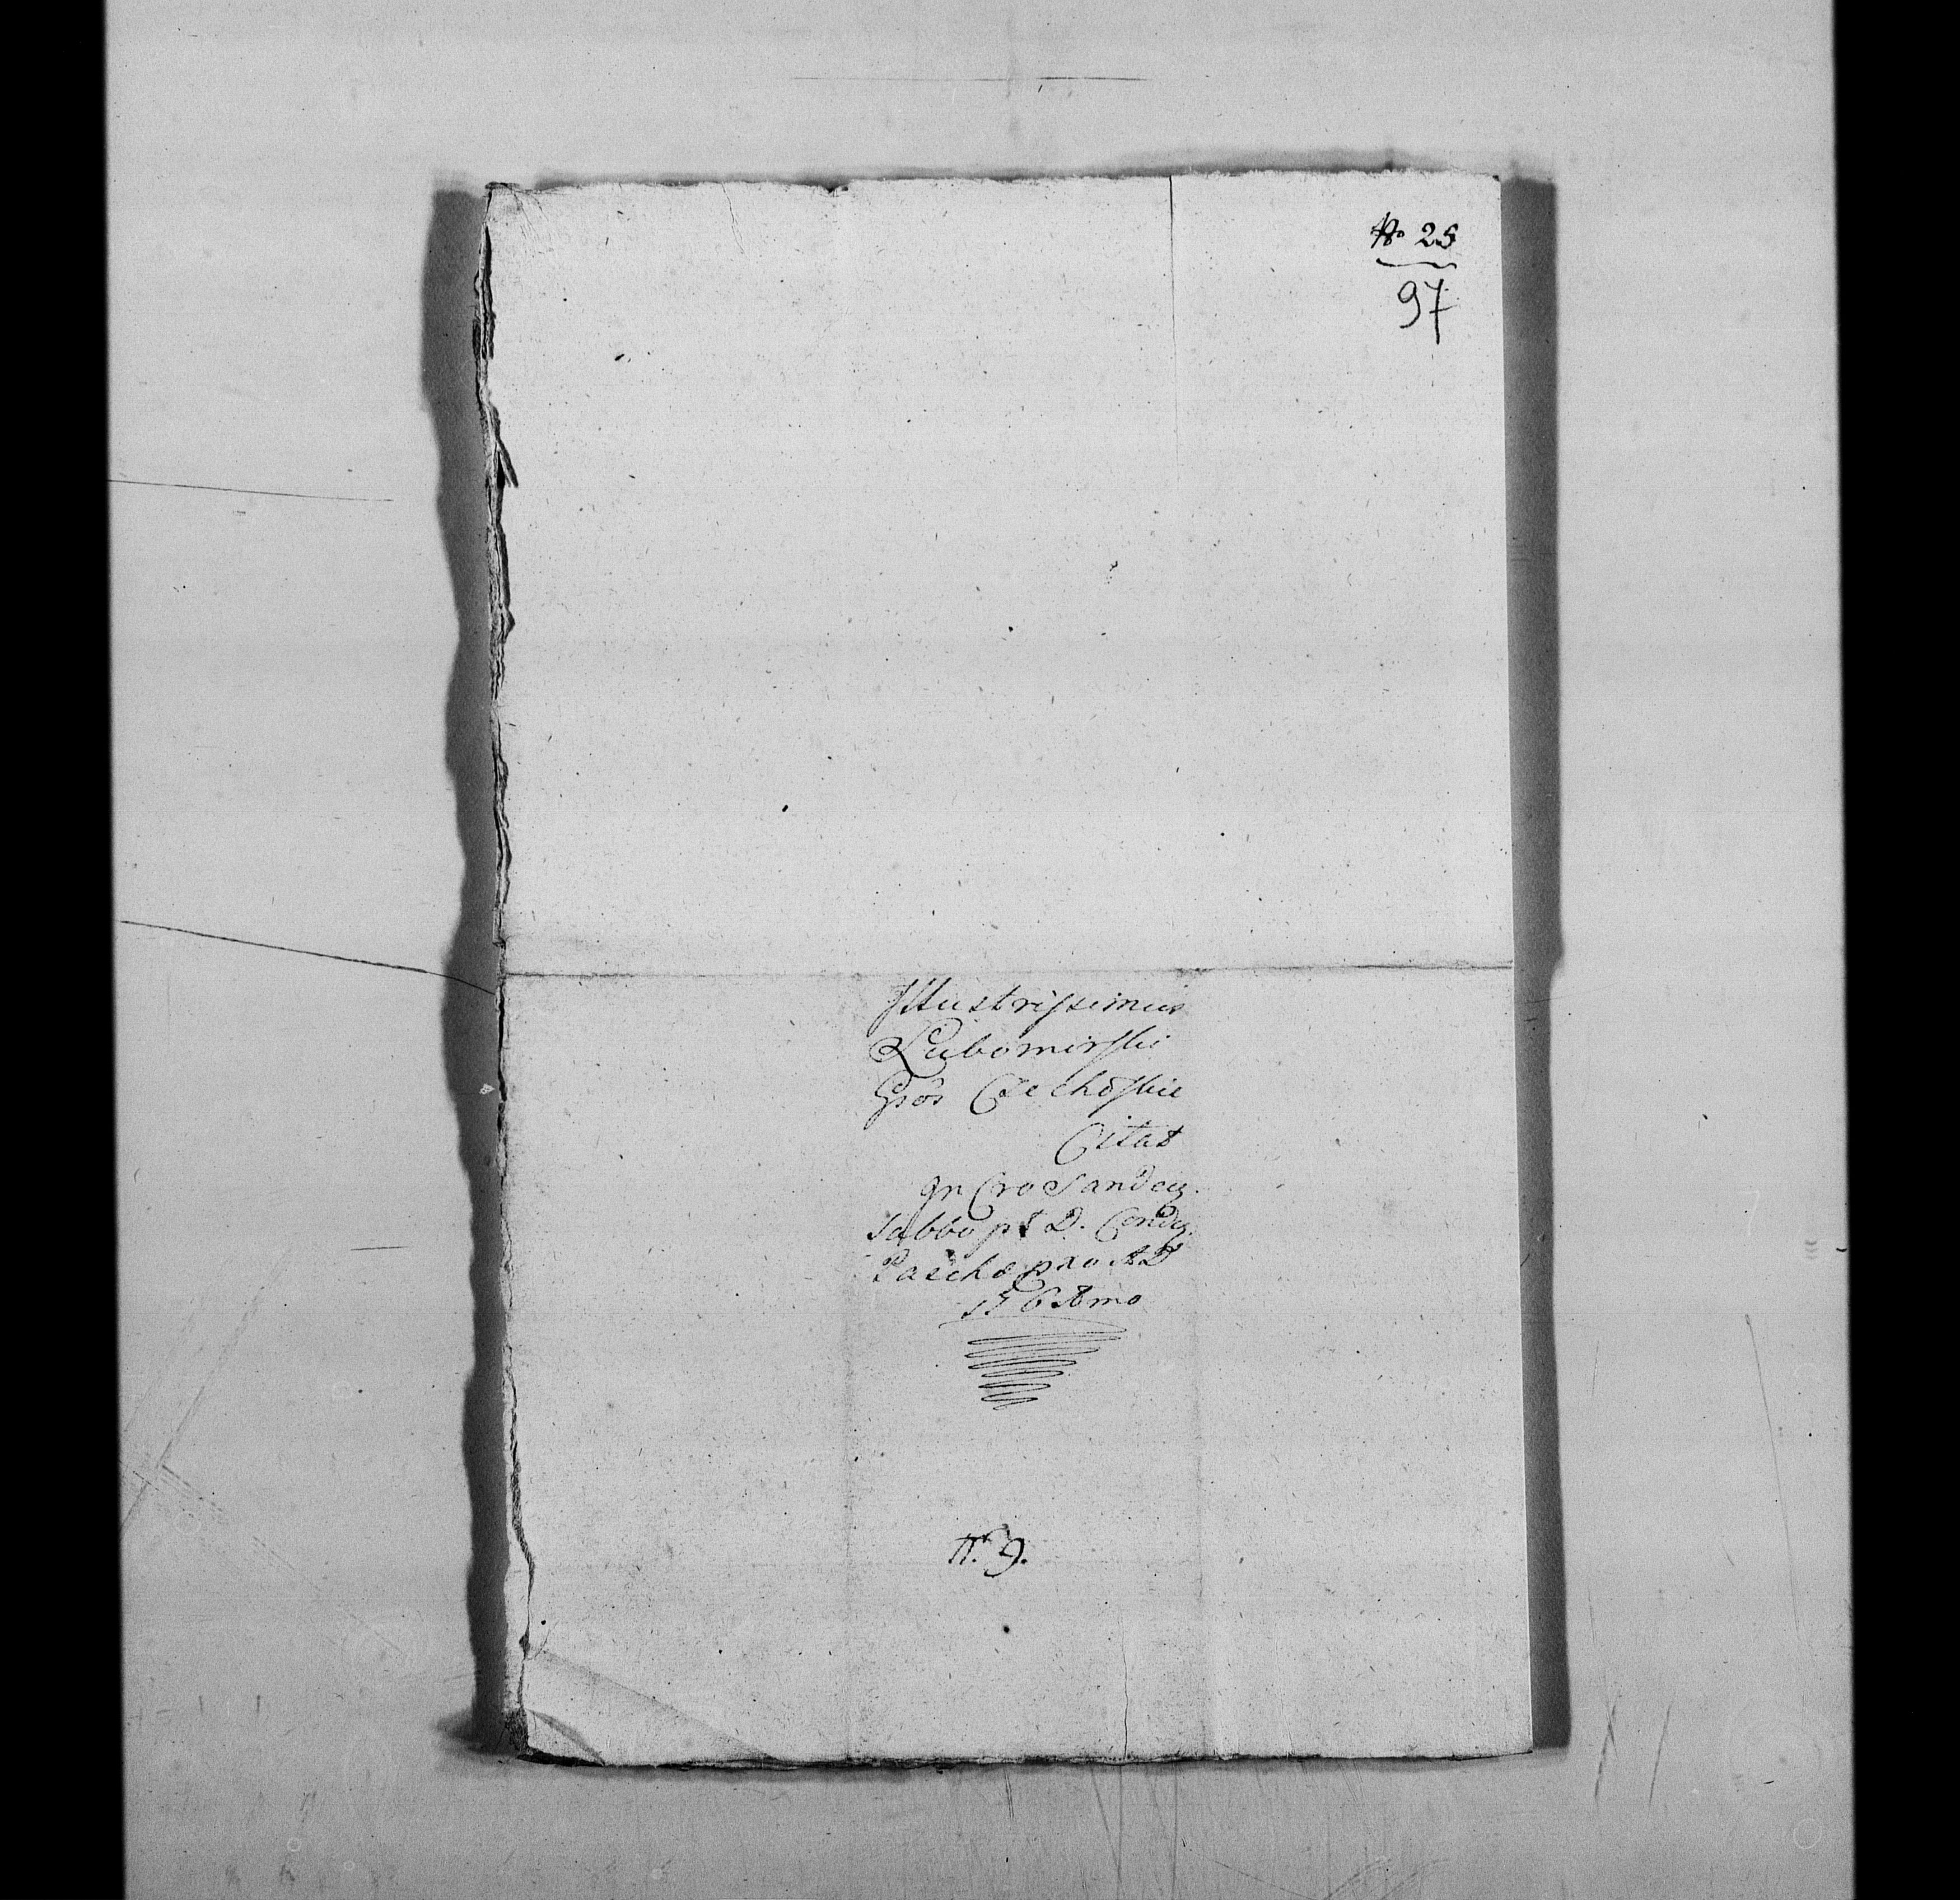 No 25
97
Illustrissimus
Lubomirski
Gsôs Czechoskie
Citat
In Cro Sandecz.
Sabbo pt D. Condcz.
Paschæ pro AD
Amo
N. 9.